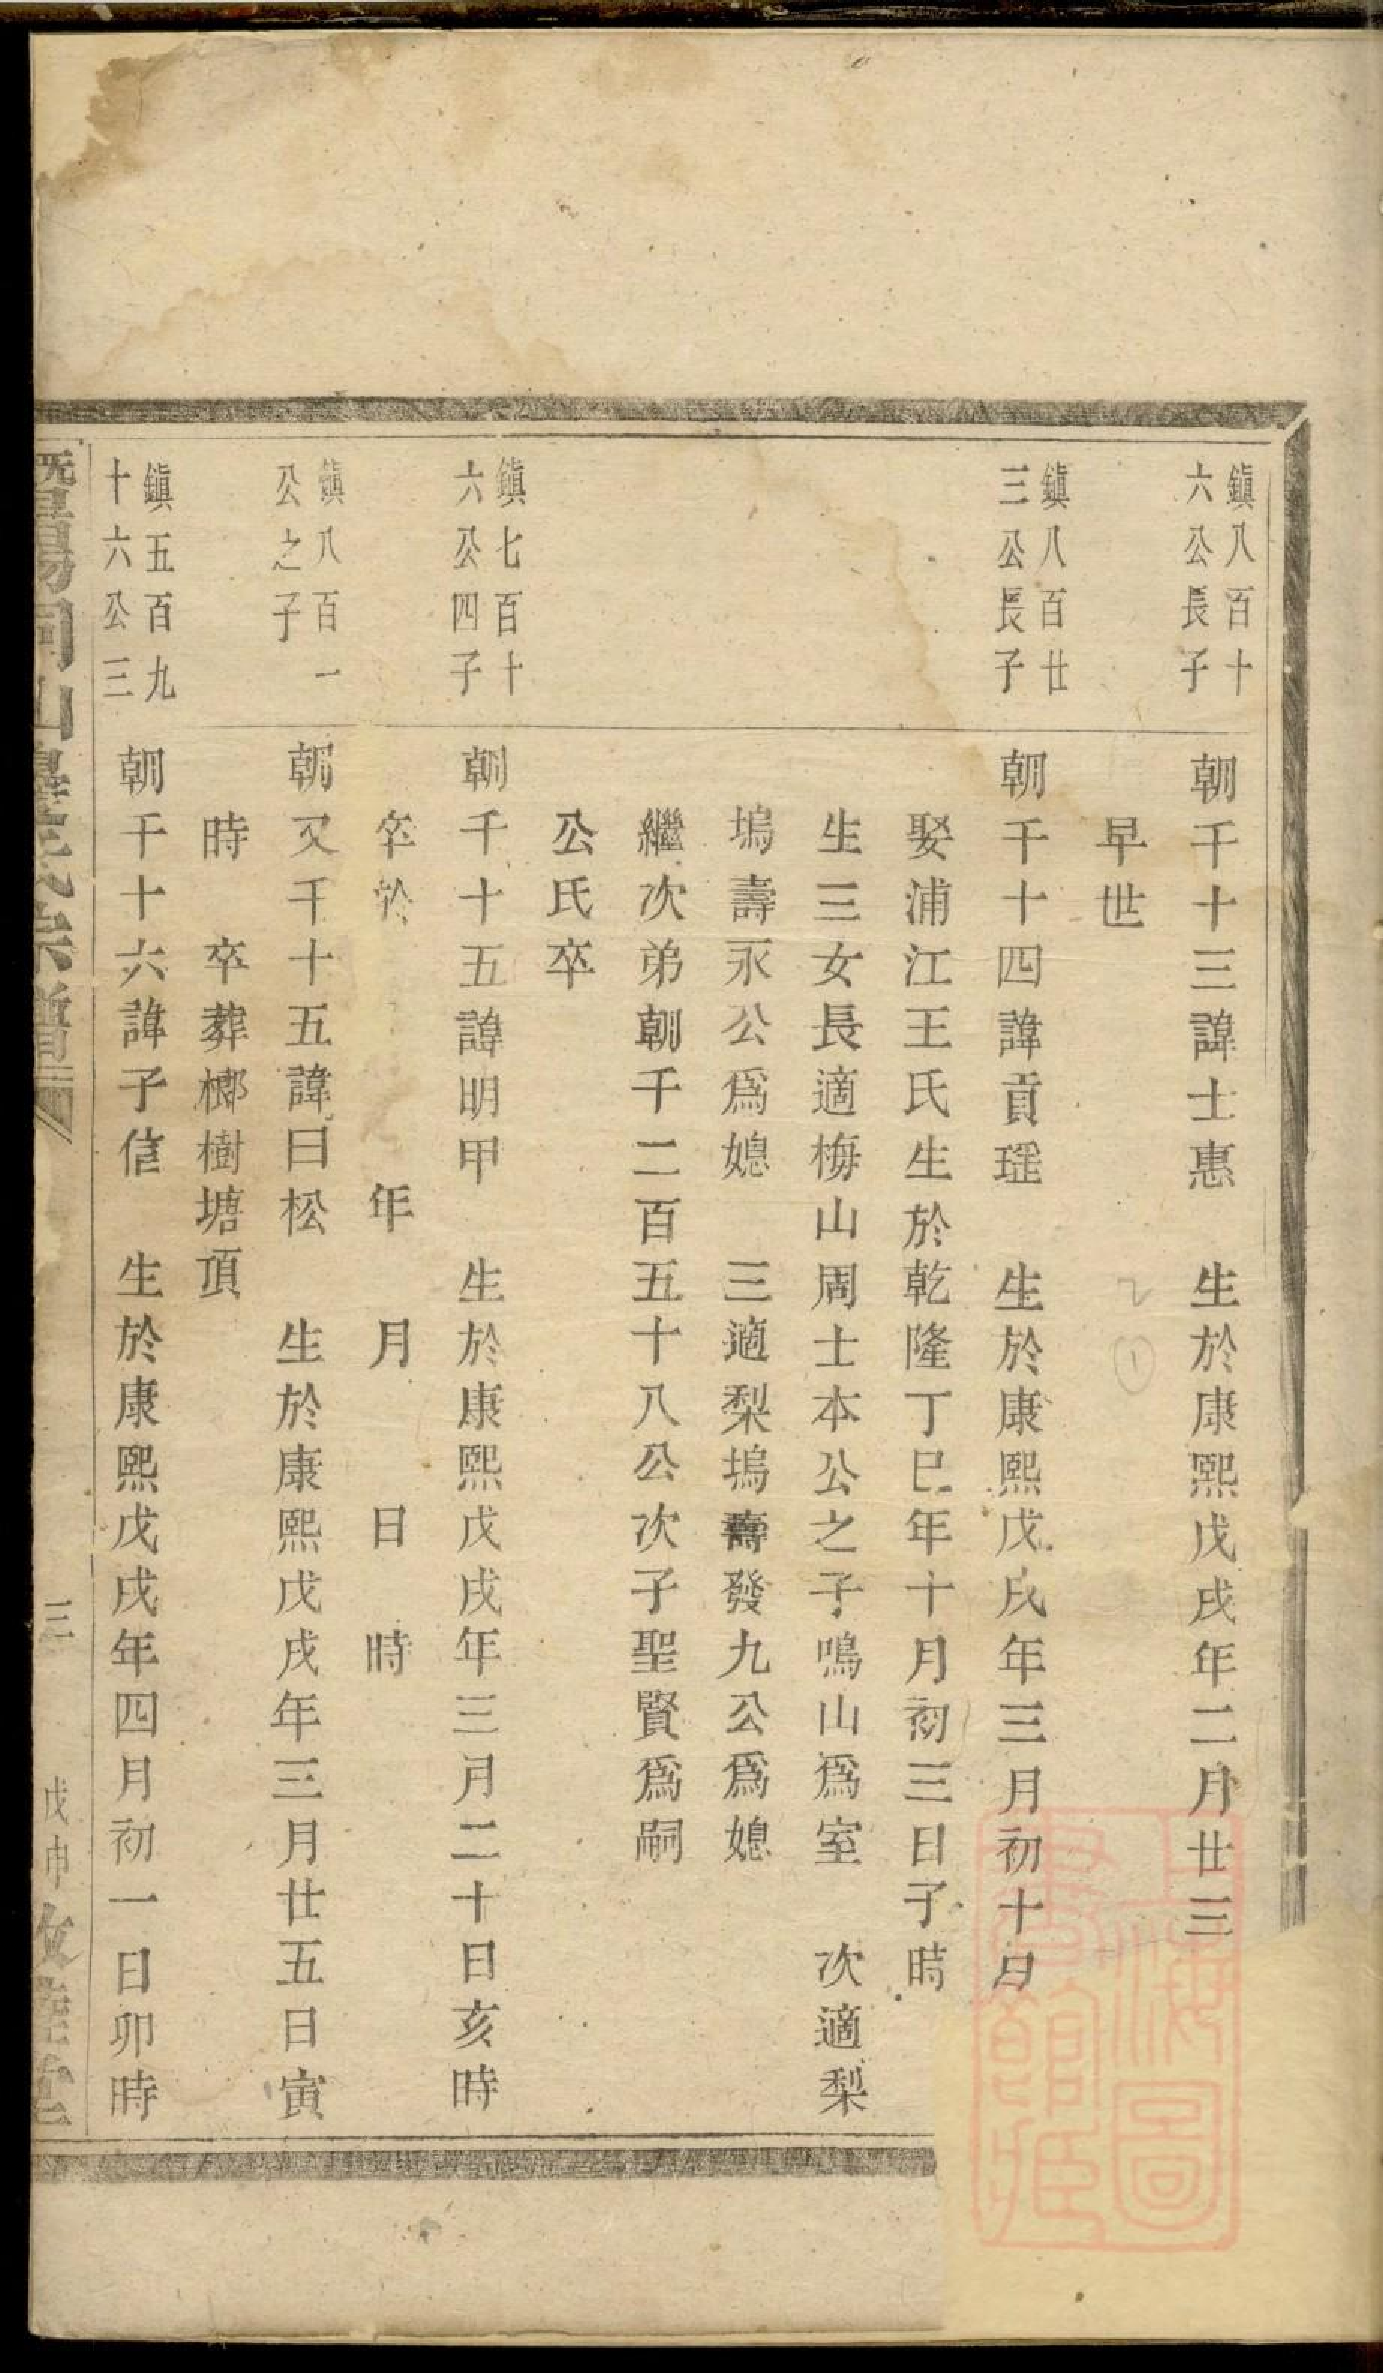 鎮八百十
六公長子
朝千十三諱士惠　生於康熙戊戌年二月廿三
早世
鎮八百廿
三公長子
朝千十四諱貢瑶　生於康熙戊戌年三月初十日
娶浦江王氏生於乾隆丁巳年十月初三日子時
生三女長適梅山周士本公之子鳴山爲室　次適梨
塢壽永公爲媳　三適梨塢壽發九公爲媳
繼次弟朝千二百五十八公次子聖賢爲嗣
公氏卒
鎮七百十
六公四子
朝千十五諱明甲　生於康熙戊戌年三月二十日亥時
卒於　年　月　日　時
鎮八百一
公之子
朝又千十五諱曰松　生於康熙戊戌年三月廿五日寅
時　卒葬榔樹塘頂
鎮五百九
十六公三
朝千十六諱子信　生於康熙戊戌年四月初一日卯時
暨陽同山邊氏宗譜
三
戊申　敦睦堂
上海圖
書館藏